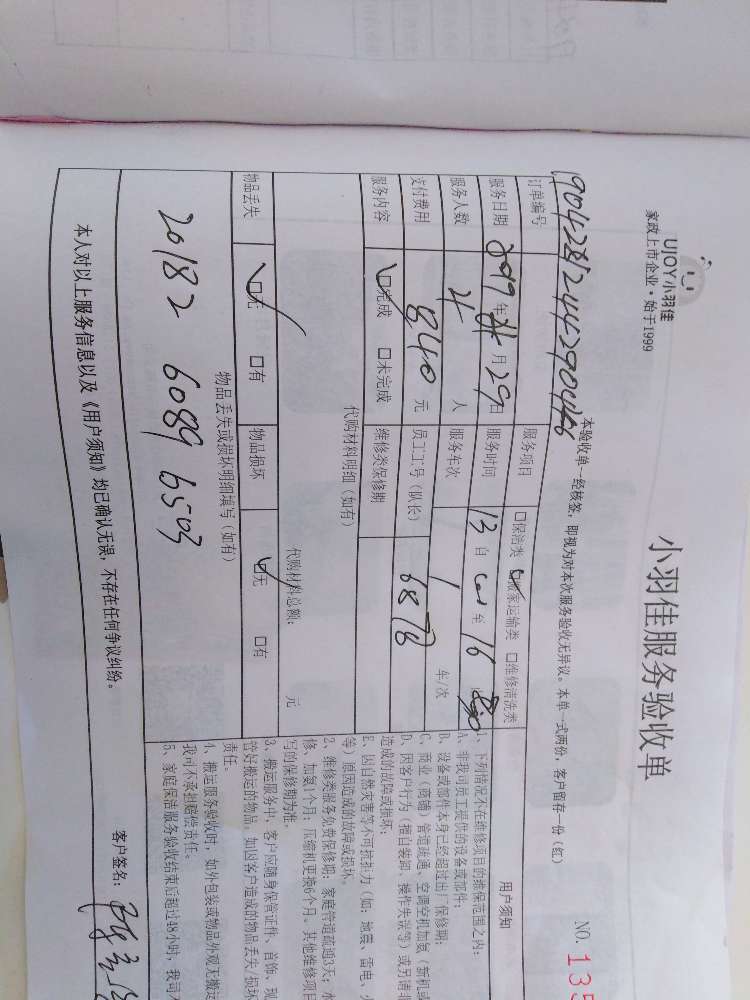 UJOY小羽佳
家政上市企业·始于1999
小羽佳服务验收单
NO. 135
本验收单一经核签，即视为对本次服务验收无异议。本单一式两份，客户留存一份（红）
订单编号
服务项目 □保洁类 ☑搬家运输类 □维修清洗类
用户须知
服务日期 年 月 29日 服务时间 13 自 至 16
服务人数 人 服务车次 1 车/次
支付费用 840 元 员工工号（队长） 6878
服务内容 ☑完成 □未完成 维修类保修期
代购材料明细（如有）
代购材料总额： 元
物品丢失 ☑无 □有 物品损坏 ☑无 □有
物品丢失或损坏明细填写（如有）
20182 6089 6503
1、下列情况不在维修项目的维保范围之内：
A、非我司员工提供的设备或部件；
B、设备或部件本身已经超过出厂保修期；
C、商业（商铺）管道疏通、空调空机加氨（新机或
D、因客户行为（擅自装卸、操作失误等）或另请非
造成的故障或损坏；
E、因自然灾害等不可抗拒力（如：地震、雷电、火
等）原因造成的故障或损坏。
2、维修类服务免费保修期：家庭管道疏通3天；水
修、加氨1个月、压缩机更换6个月。其他维修项目
写的保修期为准。
3、搬运服务中，客户应随身保管证件、首饰、现
管好搬运的物品。如因客户造成的物品丢失/损坏
责任。
4、搬运服务验收时，如外包装或物品外观无搬运
我司不承担赔偿责任。
5、家庭保洁服务验收结束后超过48小时，我司不
本人对以上服务信息以及《用户须知》均已确认无误，不存在任何争议纠纷。
客户签名：